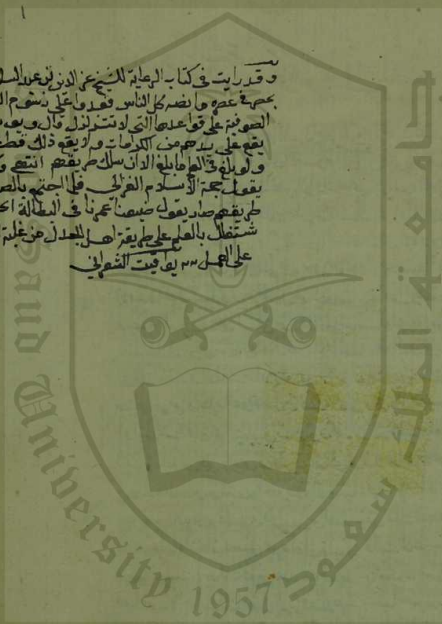 ١
وقد رايت في كتاب الرعاية للشيخ عز الدين بن عبد السل
بمصر في عصره ما نصه كل الناس قعدوا على رسوم ال
الصوفية على قواعدها التي لا تتزلزل قال ويو
يقع على يدهم من الكرامات ولا يقع ذلك قط
ولو بلغ في العلم ما بلغ الا ان سلك طريقهم انتهى و
يقول حجة الاسلام الغزالي قبل اجتماعه بالص
طريقهم صار يقول ضيعنا عمرنا في البطالة
شتغال بالعلم على طريقة اهل الجدل من غلبة
على العمل يواقيت الشعراني
جامعة الملك سعود
King Saud University
1957